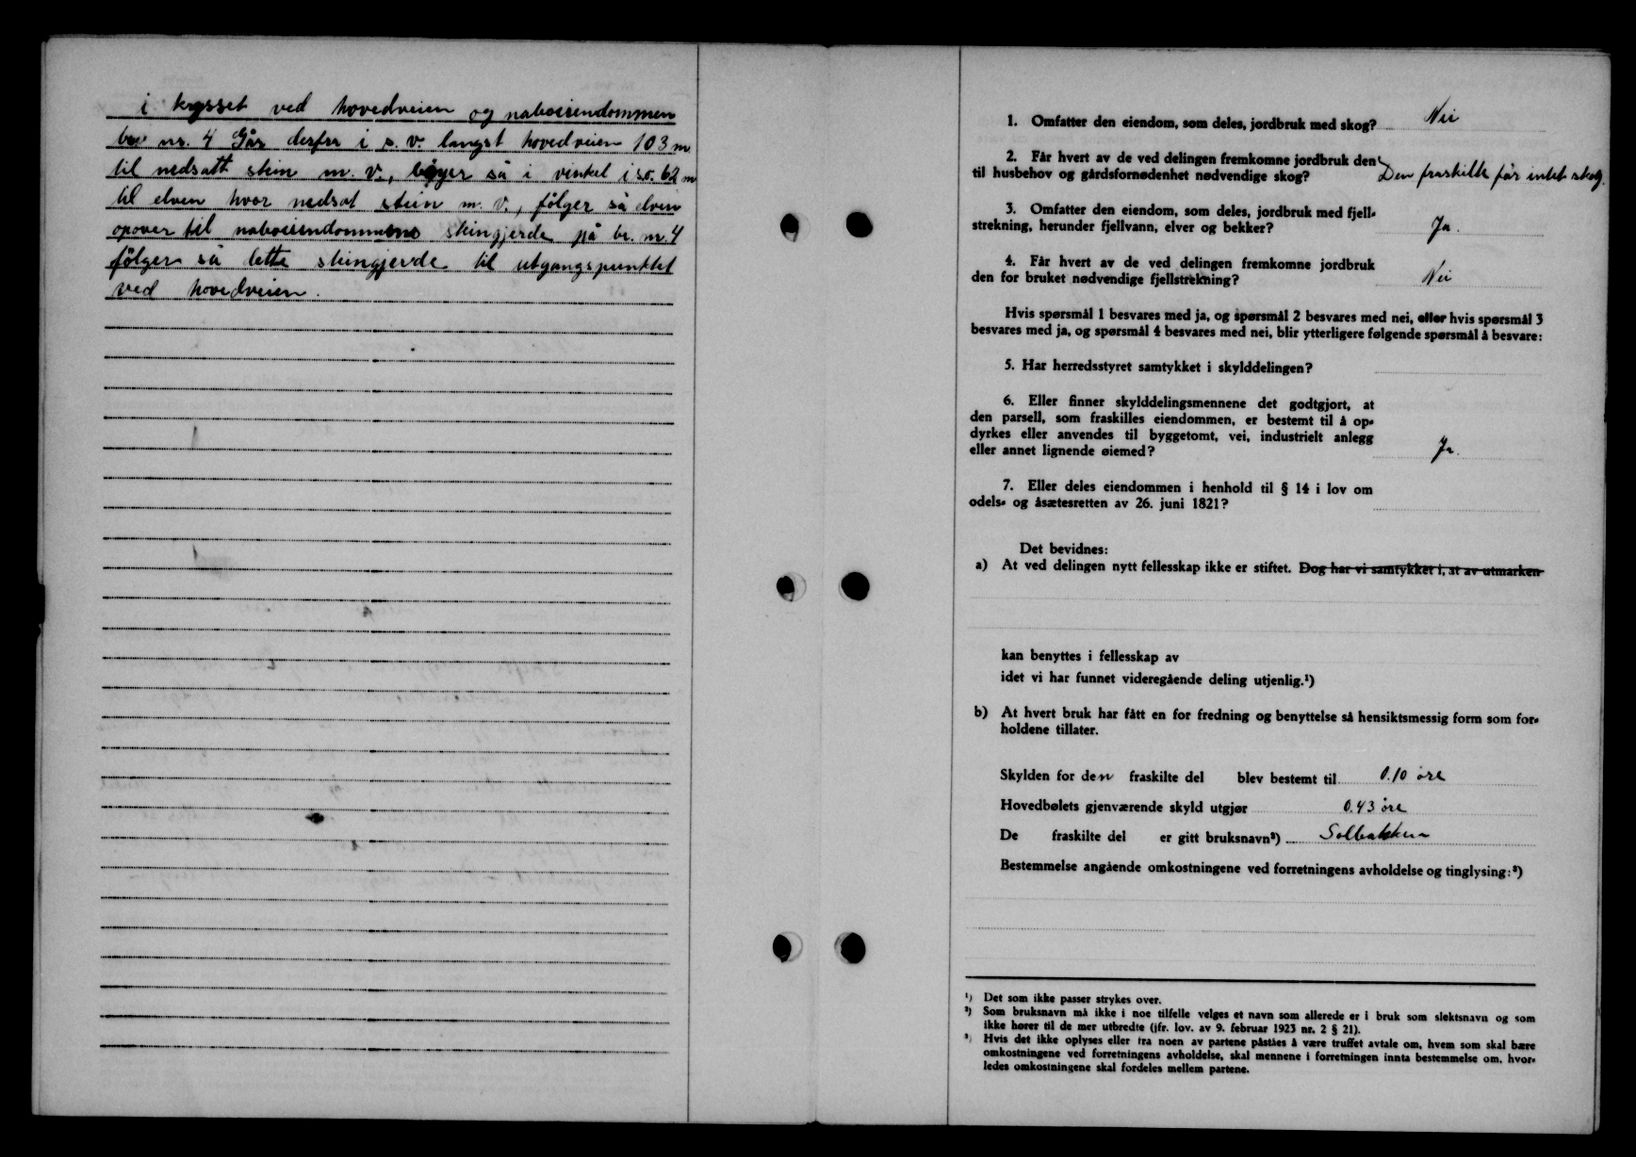 i krysset ved hovedveien og naboeiendommen
br nr. 4 Går derfra i s. v. langst hovedveien 103 m
til nedsatt sten m. v., bøyer så i vinkel i sø. 62 m
til elven hvor nedsat stein m. v., følger så elven
opover til naboeiendommens steingjerde på br. nr. 4
følger så dette steingjerde til utgangspunktet
ved hovedveien.
1. Omfatter den eiendom, som deles, jordbruk med skog? Nei
2. Får hvert av de ved delingen fremkomne jordbruk den
til husbehov og gårdsfornødenhet nødvendige skog? Den fraskilte får intet skog.
3. Omfatter den eiendom, som deles, jordbruk med fjell-
strekning, herunder fjellvann, elver og bekker? Ja.
4. Får hvert av de ved delingen fremkomne jordbruk
den for bruket nødvendige fjellstrekning? Nei
Hvis spørsmål 1 besvares med ja, og spørsmål 2 besvares med nei, eller hvis spørsmål 3
besvares med ja, og spørsmål 4 besvares med nei, blir ytterligere følgende spørsmål å besvare:
5. Har herredsstyret samtykket i skylddelingen?
6. Eller finner skylddelingsmennene det godtgjort, at
den parsell, som fraskilles eiendommen, er bestemt til å op-
dyrkes eller anvendes til byggetomt, vei, industrielt anlegg
eller annet lignende øiemed? Ja.
7. Eller deles eiendommen i henhold til § 14 i lov om
odels- og åsætesretten av 26. juni 1821?
Det bevidnes:
a) At ved delingen nytt fellesskap ikke er stiftet. Dog har vi samtykket i, at av utmarken
kan benyttes i fellesskap av
idet vi har funnet videregående deling utjenlig.¹)
b) At hvert bruk har fått en for fredning og benyttelse så hensiktsmessig form som for-
holdene tillater.
Skylden for den fraskilte del blev bestemt til 0.10 øre
Hovedbølets gjenværende skyld utgjør 0.43 øre
De fraskilte del er gitt bruksnavn²) Solbakken
Bestemmelse angående omkostningene ved forretningens avholdelse og tinglysing:³)
¹) Det som ikke passer strykes over.
²) Som bruksnavn må ikke i noe tilfelle velges et navn som allerede er i bruk som slektsnavn og som
ikke hører til de mer utbredte (jfr. lov. av 9. februar 1923 nr. 2 § 21).
³) Hvis det ikke oplyses eller fra noen av partene påståes å være truffet avtale om, hvem som skal bære
omkostningene ved forretningens avholdelse, skal mennene i forretningen innta bestemmelse om, hvor-
ledes omkostningene skal fordeles mellem partene.